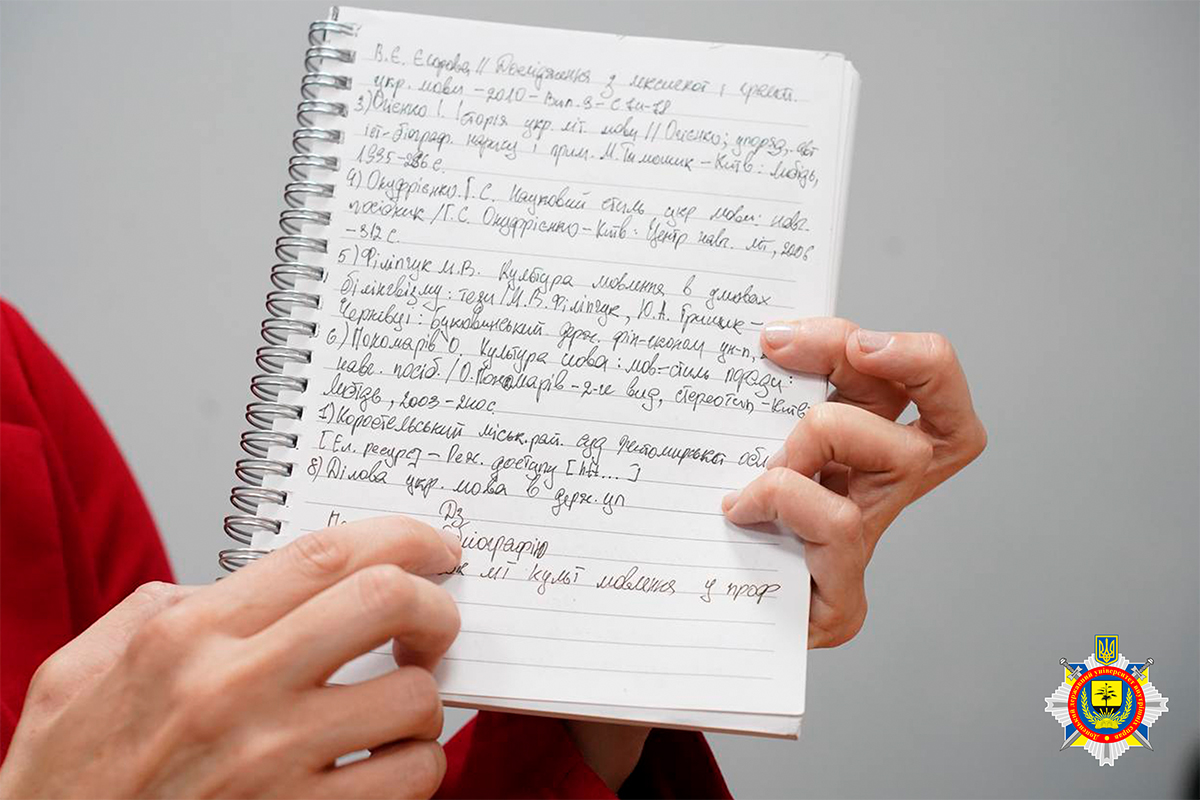 В.Є. Єгорова // Дослідження з лексикої і грамат.
укр. мови – 2010 – Вип. 9 – С
3) Огієнко І. Історія укр. літ. мови // Огієнко; упоряд., авт
іст-біограф. нарису і прим. М. Тимошик – Київ: Либідь,
1995 – с.
4) Онуфрієнко Г.С. Науковий стиль укр мови: навч.
посібник / Г.С. Онуфрієнко – Київ: Центр навч. літ, 2006
– 312 с.
5) Філіпчук М.В. Культура мовлення в умовах
білінгвізму: тези / М.В. Філіпчук, Ю.А. Грищик –
Чернівці: Буковинський держ. фін-економ ун-т,
6) Пономарів О. Культура слова: мов-стиль поради:
навч. посіб. / О. Пономарів – 2-ге вид, стереотип – Київ:
Либідь, 2003 – 240 с
1) Коростельський міськ.рай. суд Житомирської обл
[Ел. ресурс] – Реж. доступу [htt...]
8) Ділова укр. мова в держ. уп
Дз
біографію
літ культ мовлення у проф
Донецький державний університет внутрішніх справ